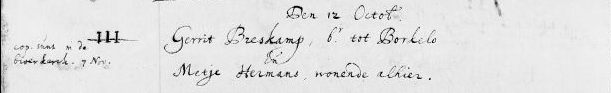 Den 12 Octob.
III
Gerrit Breskamp, br. tot Borkelo
cop. sunt in de
broerkerck. 7 Nov.
En
Metje Hermans, wonende alhier.